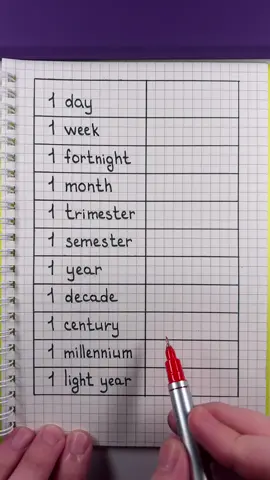 1 day
1 week
1 fortnight
1 month
1 trimester
1 semester
1 year
1 decade
1 century
1 millennium
1 light year